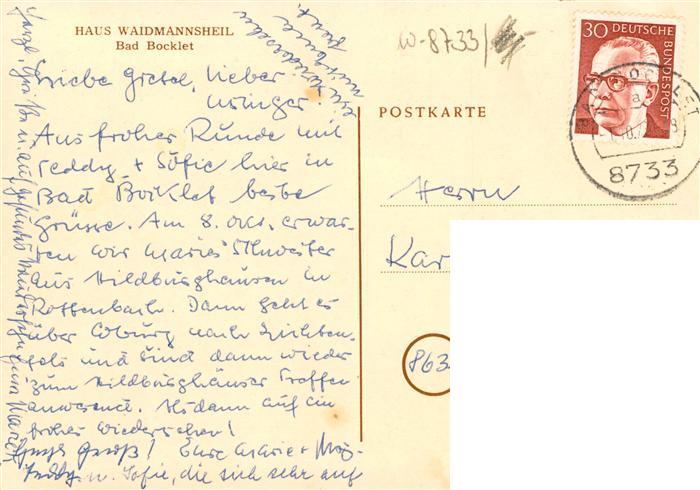 HAUS WAIDMANNSHEIL
Bad Bocklet
Liebe Gretel, lieber
Aus froher Runde mit
Teddy + Sofie hier in
Bad Bocklet beste
Grüsse. Am 8. Okt. erwar-
ten wir Maries Schwester
aus Hildburghausen in
Rottenbach. Dann geht es
über Coburg nach Lichten-
fels und sind dann wieder
zum Hildburghäuser Treffen
anwesend. Alsdann auf ein
frohes Wiedersehen!
Gruß! Eure Marie +
Teddy u. Sofie, die sich sehr auf
W-8733/
POSTKARTE
Herrn
Kar
863
30 DEUTSCHE
BUNDESPOST
8733